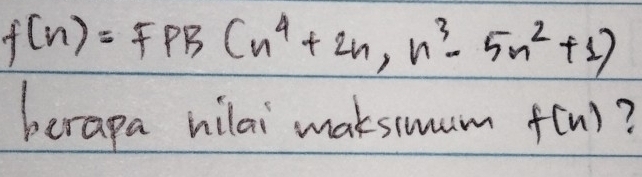 f(n) = FPB (n⁴ + 2n, n³ - 5n² + 1)
berapa nilai maksimum f(n)?